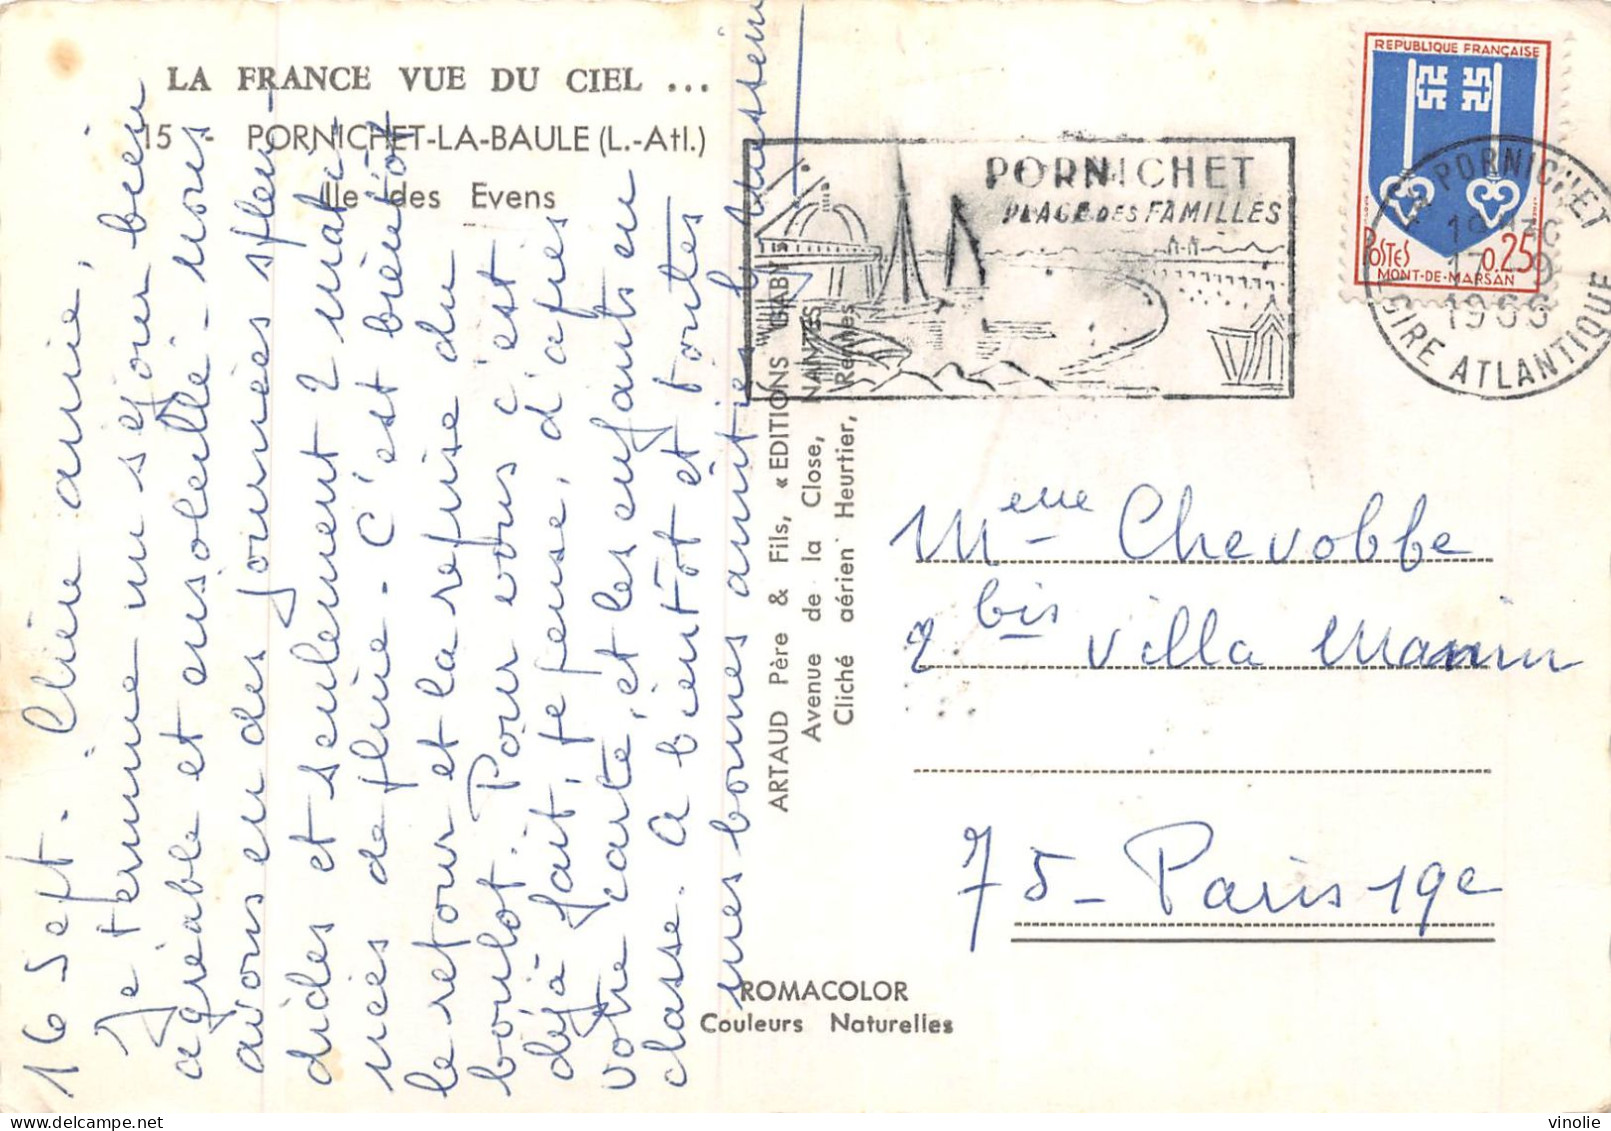 LA FRANCE VUE DU CIEL ...
15 - PORNICHET-LA-BAULE (L.-Atl.)
Ile des Evens
16 Sept. Chère amie,
Je termine un séjour bien
agréable et ensoleillé - nous
avons eu des journées splen-
dides et seulement 2 mati-
nées de pluie. C'est bientôt
le retour et la reprise du
boulot. Pour vous c'est
déjà fait, je pense, d'après
votre carte, et les enfants en
classe. A bientôt et toutes
mes bonnes amitiés
ARTAUD Père & Fils, « EDITIONS GABY »
Avenue de la Close, NANTES
Cliché aérien Heurtier, Rennes
ROMACOLOR
Couleurs Naturelles
PORNICHET
PLAGE DES FAMILLES
REPUBLIQUE FRANÇAISE
POSTES 0,25
MONT-DE-MARSAN
PORNICHET
17 - 9
1966
LOIRE ATLANTIQUE
Mme Chevobbe
2 bis villa Manin
75 - Paris 19e
vinolie